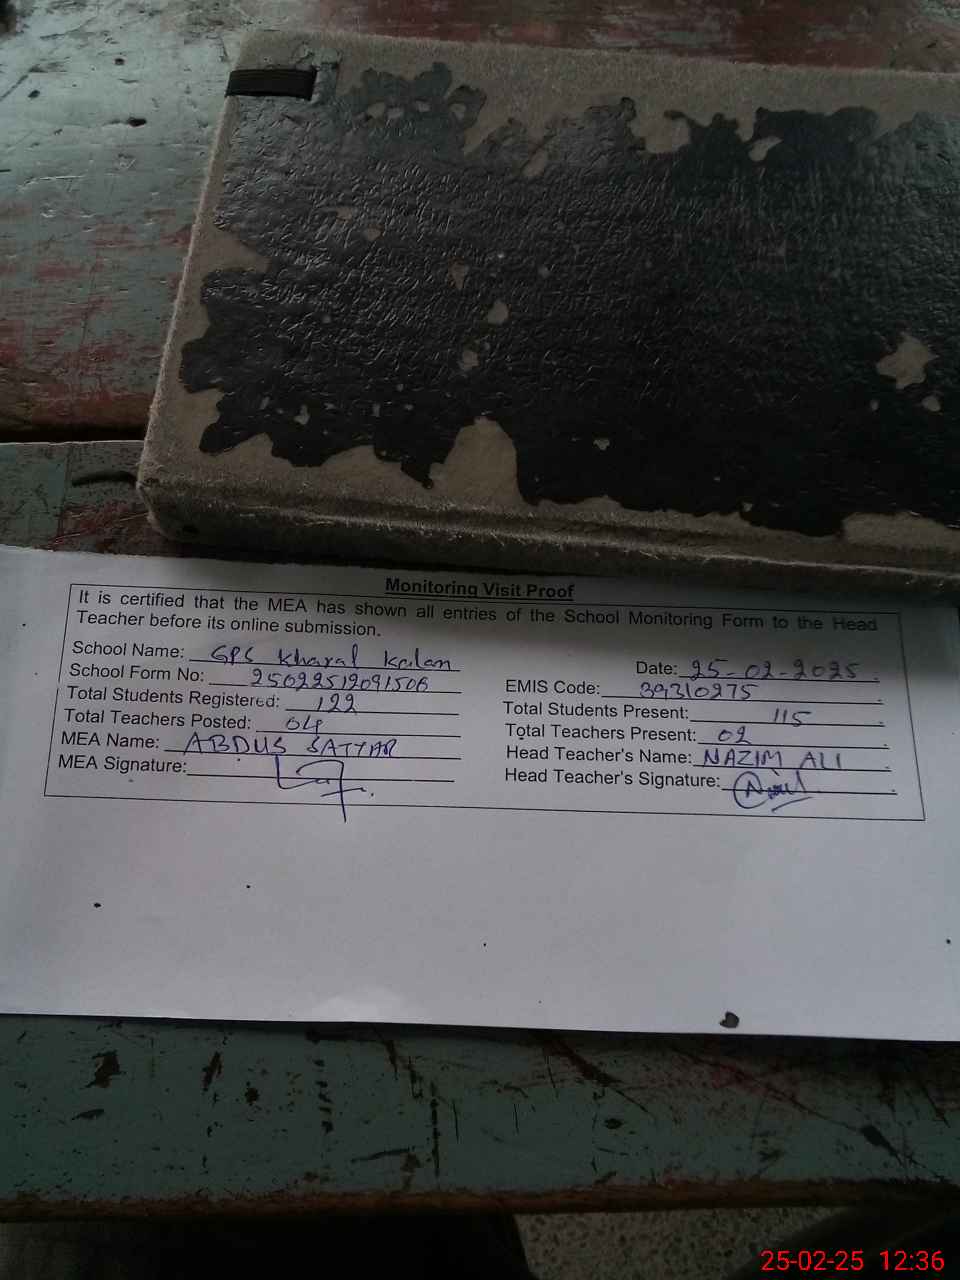 Monitoring Visit Proof
It is certified that the MEA has shown all entries of the School Monitoring Form to the Head
Teacher before its online submission.
School Name: GPS Kharal Kalan
Date: 25-02-2025
School Form No: 25022512091506
EMIS Code: 39310275
Total Students Registered: 122
Total Students Present: 115
Total Teachers Posted: 04
Total Teachers Present: 02
MEA Name: ABDUS SATTAR
Head Teacher's Name: NAZIM ALI
MEA Signature:
Head Teacher's Signature:
25-02-25 12:36